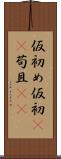 仮初め仮初
苟且